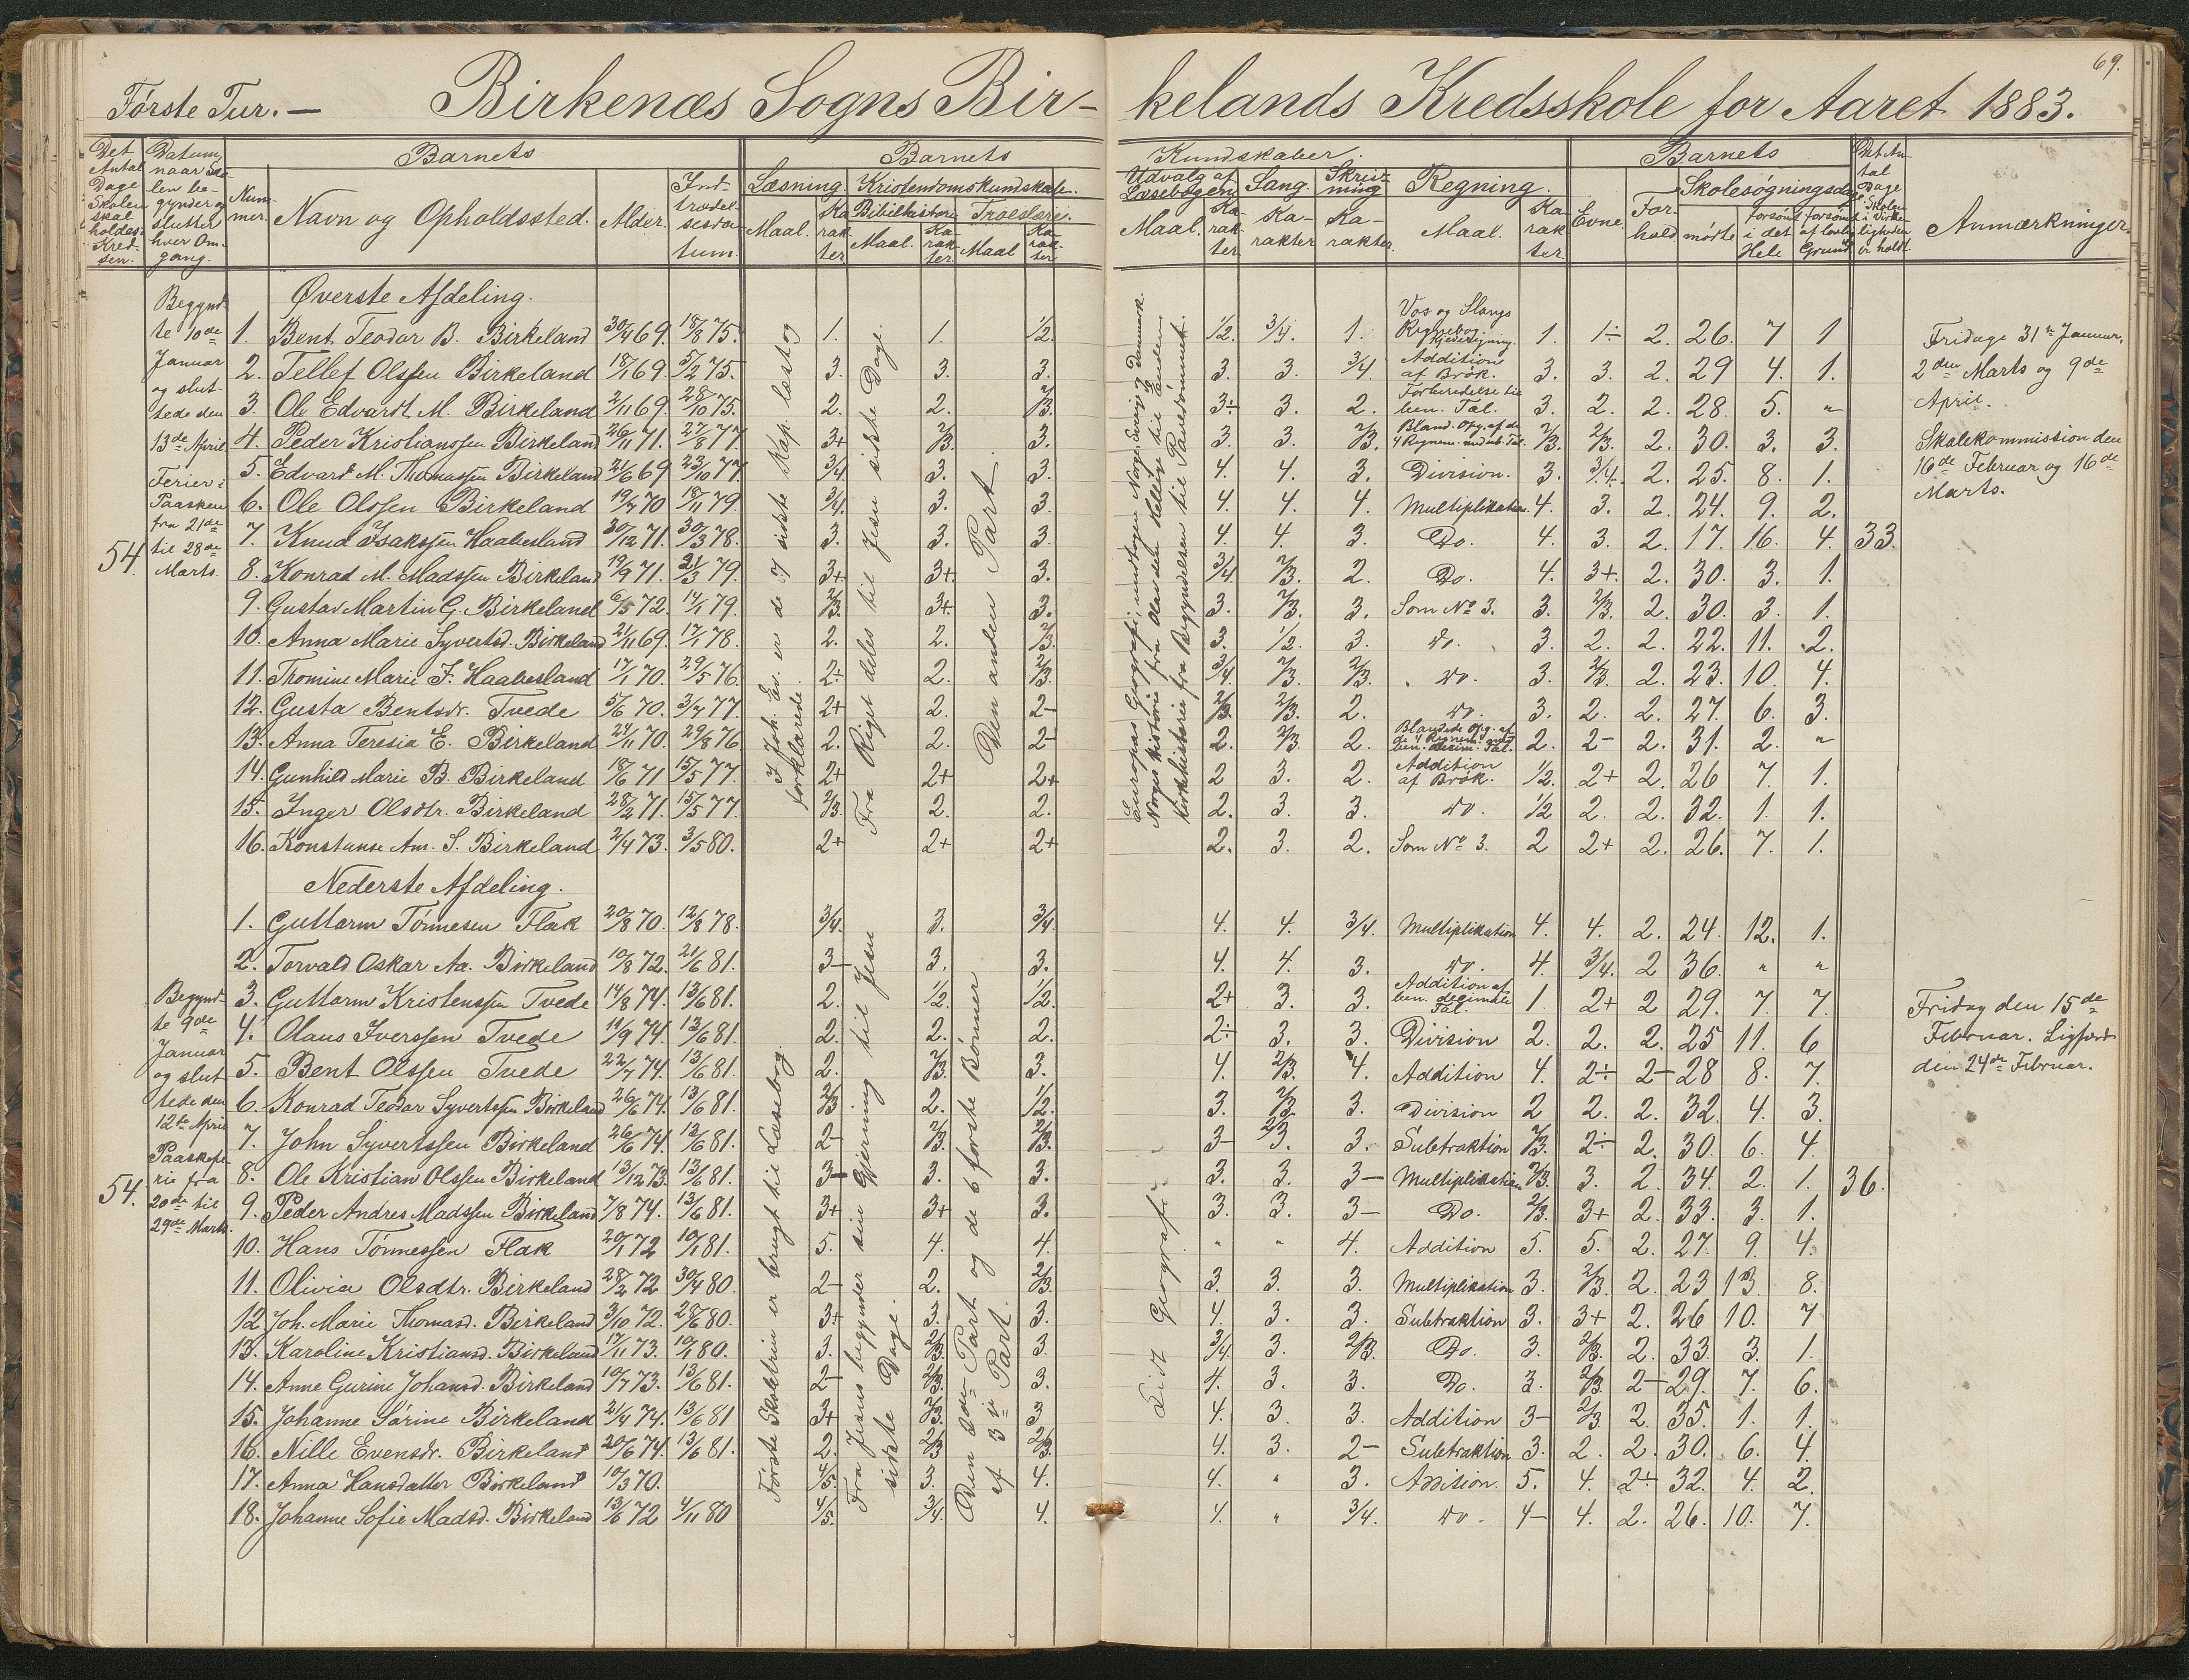 69.
Første Tur. — Birkenæs Sogns Birkelands Kredsskole for Aaret 1883.
Det Antal Dage Skolen skal holdes i Kredsen.
Datum, naar Skolen begynder og slutter hver Omgang.
Barnets
Nummer.
Navn og Opholdssted.
Alder.
Indtrædelsesdatum.
Barnets Kundskaber.
Læsning.
Maal. Karakter.
Kristendomskundskab.
Bibelhistorie
Maal. Karakter.
Troeslære.
Maal Karakter
Udvalg af Læsebogen
Maal. Karakter
Sang.
Karakter
Skrivning
Karakter.
Regning.
Maal. Karakter.
Barnets
Evne.
Forhold
Skolesøgningsdage.
mødte
forsømt i det Hele
forsømt af lovlig Grund
Det Antal Dage Skolen i Virkeligheden er holdt.
Anmærkninger.
54.
Begyndte 10de Januar og sluttede den 13de April
Ferier i Paasken fra 21de til 28de Marts.
Øverste Afdeling.
I Joh. Ev. er de 7 sidste Kap. læst og forklarede
Fra Riget deles til Jesu sidste Dage.
Den anden Part.
Europas Geografi; undtagen Norge, Sverige og Danmark.
Norges Historie fra Olav den Hellige til Enden
Kirkehistorie fra Begyndelsen til Pavedømmet.
1. Bent Teodor B. Birkeland 30/4 69. 18/8 75. 1. 1. 1/2. 1/2. 3/4. 1. Vos og Slangs Regnebog. 1. 1÷ 2. 26. 7 1
2. Tellef Olssen Birkeland 18/1 69. 5/2 75. 3. 3. 3. 3. 3. 3/4. Addition af Brøk. 3. 3. 2. 29 4. 1.
3. Ole Edvardt M. Birkeland 2/11 69. 28/10 75. 2. 2. 2/3. 3÷ 3. 2. Forberedelse til ben. Tal. 3. 2. 2. 28. 5. "
4. Peder Kristianssen Birkeland 26/11 71. 27/8 77 3+ 2/3. 3. 3. 3. 2/3. Bland. Opg. af de 4 Regnem. med ub. Tal. 2/3. 2/3. 2. 30. 3. 3.
5. Edvard M. Thomassen Birkeland 21/6 69 23/10 77 3/4. 3. 3. 4. 4. 3. Division. 3. 3/4. 2. 25. 8. 1.
6. Ole Olssen Birkeland 19/7 70 18/11 79. 3/4. 3. 3. 4. 4. 4. Multiplikation. 4. 3. 2. 24. 9. 2.
7. Knud Isakssen Haabesland 30/12 71. 30/3 78. 3. 3. 3. 4. 4. 3. Do. 4. 3. 2. 17. 16. 4. 33.
8. Konrad M. Madssen Birkeland 19/9 71. 21/3 79. 3+ 3+ 3. 3/4. 2/3. 2. Do. 4. 3+. 2. 30. 3. 1.
9. Gustav Martin G. Birkeland 6/5 72. 14/1 79. 2/3. 3+ 3. 3. 2/3. 3. Som No 3. 3. 2/3. 2. 30. 3. 1.
10. Anna Marie Syvertsd. Birkeland 21/11 69. 17/1 78. 2. 2. 2/3. 3. 1/2. 3. do. 3. 2. 2. 22. 11. 2.
11. Tromine Marie J. Haabesland 17/1 70. 29/5 76. 2÷ 2. 2/3. 3/4. 2/3. 2/3. do. 3. 2/3. 2. 23. 10. 4.
12. Gusta Bentsdr. Tvede 5/6 70. 3/7 77. 2+ 2. 2- 2/3. 2/3. 2. do. 3. 2. 2. 27. 6. 3.
13. Anna Teresia E. Birkeland 24/11 70. 29/8 76 2. 2. 2- 2. 2/3. 2. Blandede Opg. af de 4 Regnem. med ben. decim. Tal. 2. 2- 2. 31. 2. "
14. Gunhild Marie B. Birkeland 18/6 71 15/5 77. 2+ 2+ 2+ 2 3. 2. Addition af Brøk. 1/2. 2+ 2. 26 7. 1.
15. Inger Olsdtr. Birkeland 28/2 71. 15/5 77. 2/3. 2. 2. 2. 3. 3. do. 1/2 2. 2. 32. 1. 1.
16. Konstanse Am. S. Birkeland 2/4 73. 3/5 80. 2+ 2+ 2+ 2. 3. 2. Som No 3. 2 2+ 2. 26. 7. 1.
Fridage 31te Januar, 2den Marts og 9de April.
Skolekommission den 16de Februar og 16de Marts.
Nederste Afdeling.
54.
Begyndte 9de Januar og sluttede den 12te April
Paaskeferie fra 20de til 29de Marts.
Første Skoletrin er brugt til Læsebog.
Fra Jesus begynder sin Gjerning til Jesu sidste Dage.
Den 2den Part og de 6 første Bønner af 3die Part.
Lidt Geografi.
1. Guttorm Tønnesen Flak 20/8 70. 12/8 78. 3/4. 3. 3/4. 4. 4. 3/4. Multiplikation 4. 4. 2. 24. 12. 1.
2. Torvald Oskar Aa. Birkeland 10/8 72. 21/6 81. 3- 3. 3. 4. 4. 3. do. 4. 3/4. 2 36. " "
3. Guttorm Kristenssen Tvede 14/8 74. 13/6 81. 2. 1/2. 1/2. 2+ 3. 3. Addition af ben. decimale Tal. 1. 2+ 2 29. 7. 7.
4. Olaus Iverssen Tvede 11/9 74. 13/6 81. 2. 2. 2. 2÷ 3. 3. Division 2. 2. 2. 25 11. 6
5. Bent Olssen Tvede 22/7 74. 13/6 81. 2. 2/3. 3. 4. 2/3. 4. Addition 4. 2÷ 2- 28 8. 7.
6. Konrad Teodor Syvertssen Birkeland 26/6 74. 13/6 81. 2/3. 2. 1/2. 3. 2/3. 3. Division 2 2. 2. 32. 4. 3.
7. John Syvertssen Birkeland 26/6 74. 13/6 81. 2- 2/3. 2/3. 3- 2/3. 3. Subtraktion 2/3. 2÷ 2. 30. 6. 4.
8. Ole Kristian Olssen Birkeland 13/12 73. 13/6 81. 3- 3. 3. 3. 3. 3- Multiplikation 2/3. 3. 2. 34. 2. 1. 36.
9. Peder Andres Madssen Birkeland 7/8 74. 13/6 81. 3+ 3+ 3. 3. 3. 3- Do. 2/3. 3+ 2. 33. 3. 1.
10. Hans Tønnessen Flak 20/1 72 10/1 81. 5. 4. 4. " " 4. Addition 5. 5. 2. 27. 9. 4.
11. Olivia Olsdtr. Birkeland 28/2 72 30/4 80. 2- 2. 2/3. 3. 3. 3. Multiplikation 3. 2/3. 2. 23 13. 8.
12 Joh. Marie Thomasd. Birkeland 3/10 72. 28/6 80. 3+ 3. 3. 4. 3. 3. Subtraktion 3. 3+ 2. 26 10. 7
13. Karoline Kristiansd. Birkeland 17/11 73. 10/1 80. 3. 2/3. 3. 3/4. 3. 2/3. Do. 3. 2/3. 2. 33. 3. 1.
14. Anne Gurine Johansd. Birkeland 10/7 73. 13/6 81. 2- 2/3. 3. 4. 3. 3. Do. 3. 2/3. 2- 29. 7. 6.
15. Johanne Sørine Birkeland 21/4 74. 13/6 81 3+ 2/3. 3 4. 3. 3. Addition 3- 2/3. 2. 35. 1. 1.
16. Nille Evensdr. Birkeland 20/6 74. 13/6 81. 2. 2/3 2/3. 4. 3. 2- Subtraktion 3. 2. 2. 30. 6. 4.
17. Anna Hansdatter Birkeland 10/3 70. 4/5. 3. 4. 4. " 3. Addition. 5. 4. 2+ 32. 4. 2.
18. Johanne Sofie Madsd. Birkeland 13/6 72 4/11 80 4/5. 3/4. 4. 4. " 3/4. do. 4- 4. 2. 26. 10. 7.
Fridag den 15de Februar. Ligfærd den 24de Februar.